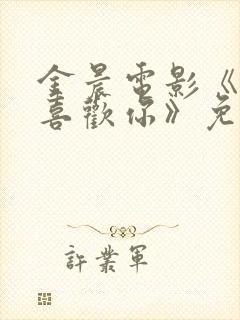 金晨電影《
喜歡你》免
許業軍